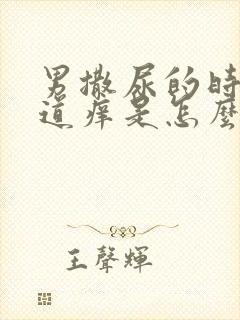 男撒尿的時
道痒是怎麼
王聲輝